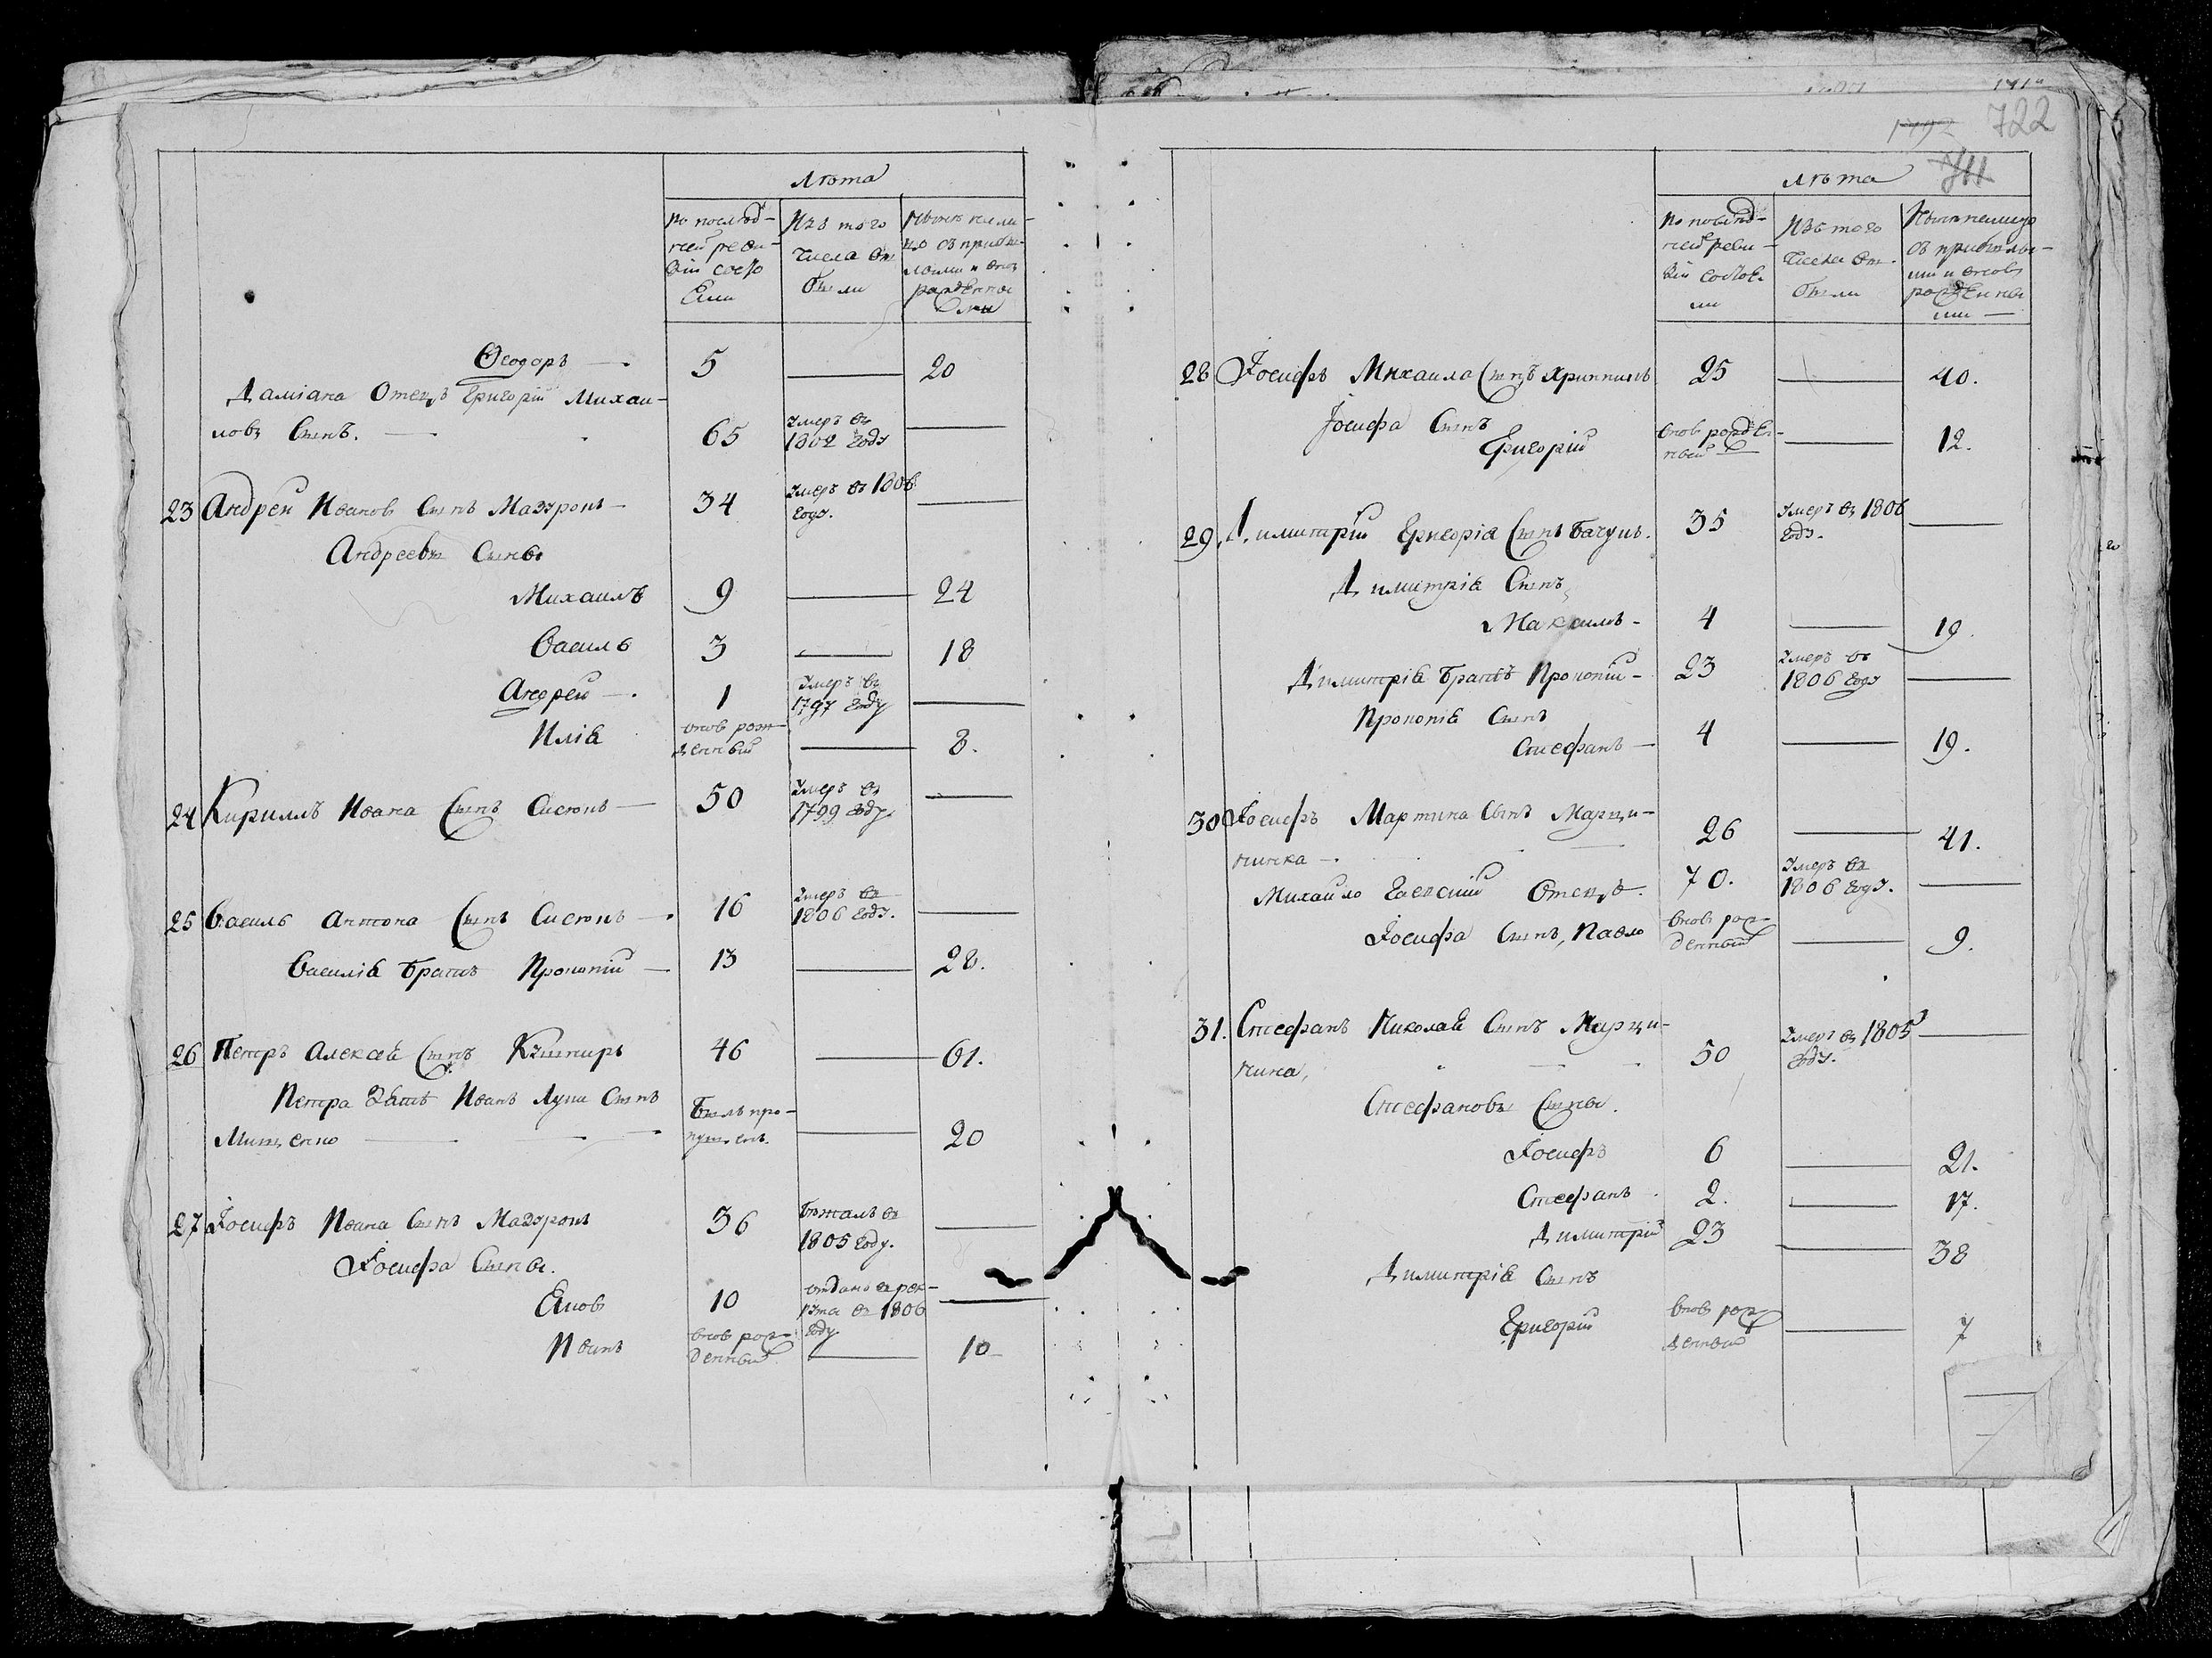 Лѣта
По послѣд-
ней реви-
зіи состо
Яли
Изъ того
числа вы
были
Нынѣ налиц
цо съ прибы-
лыми и внов
рожденны
ми
Ѳеодоръ — 5 — 20
Даміана Отецъ Григорій Михаи-
ловъ Сынъ. — 65 Умеръ въ 1802 Году —
23 Андрей Иванов Сынъ Мазуронъ — 34 Умеръ въ 1806 Году. —
Андреевы Сыны
Михаилъ 9 — 24
Василь 3 — 18
Андрей — 1 Умеръ въ 1797 Году —
Илія внов рожденный — 8.
24 Кириллъ Ивана Сынъ Сисюнъ — 50 Умеръ въ 1799 Году. —
25 Василь Антона Сынъ Сисюнъ — 16 Умеръ въ 1806 Году. —
Василія Братъ Прокопій — 13 — 28.
26 Петръ Алексея Сынъ Кушниръ 46 — 61.
Петра Зять Иванъ Луки Сынъ
Мищенко — Былъ пропущенъ. — 20
27 Іосифъ Ивана Сынъ Мазуронъ 36 Бѣжалъ въ 1805 Году. —
Іосифа Сыны.
Яковъ 10 отданъ в рекрута въ 1806 Году —
Иванъ внов рожденный — 10
722
711
Лѣта
По послѣд-
ней реви-
зіи состоя
ли
Изъ того
числа вы-
были
Нынѣ налицо
съ прибылы-
ми и вновь
рожденны
ми —
28 Іосифъ Михаила Сынъ Хрипкинъ 25 — 40.
Іосифа Сынъ
Григорій внов рожденный — 12.
29. Димитрій Григорія Сынъ Бачунъ. 35 Умеръ въ 1806 Году. —
Димитрія Сынъ
Максимъ - 4 — 19.
Димитрія Братъ Прокопій - 23 Умеръ въ 1806 Году —
Прокопія Сынъ
Стефанъ — 4 — 19.
30 Іосифъ Мартина Сынъ Марци-
нинка — 26 — 41.
Михайло Отецъ. 70. Умеръ въ 1806 Году. —
Іосифа Сынъ, Павло внов рожденный — 9.
31. Стефанъ Николая Сынъ Марци-
нина, 50 Умеръ въ 1805 Году. —
Стефановы Сыны.
Іосифъ 6 — 21.
Стефанъ 2. — 17.
Димитрій 23 — 38
Димитрія Сынъ
Григорій внов рожденный — 7